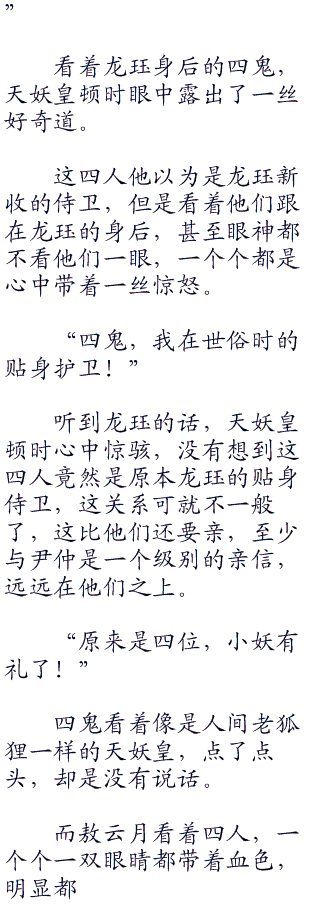 ”
看着龙珏身后的四鬼，
天妖皇顿时眼中露出了一丝
好奇道。
这四人他以为是龙珏新
收的侍卫，但是看着他们跟
在龙珏的身后，甚至眼神都
不看他们一眼，一个个都是
心中带着一丝惊怒。
“四鬼，我在世俗时的
贴身护卫！”
听到龙珏的话，天妖皇
顿时心中惊骇，没有想到这
四人竟然是原本龙珏的贴身
侍卫，这关系可就不一般
了，这比他们还要亲，至少
与尹仲是一个级别的亲信，
远远在他们之上。
“原来是四位，小妖有
礼了！”
四鬼看着像是人间老狐
狸一样的天妖皇，点了点
头，却是没有说话。
而敖云月看着四人，一
个个一双眼睛都带着血色，
明显都